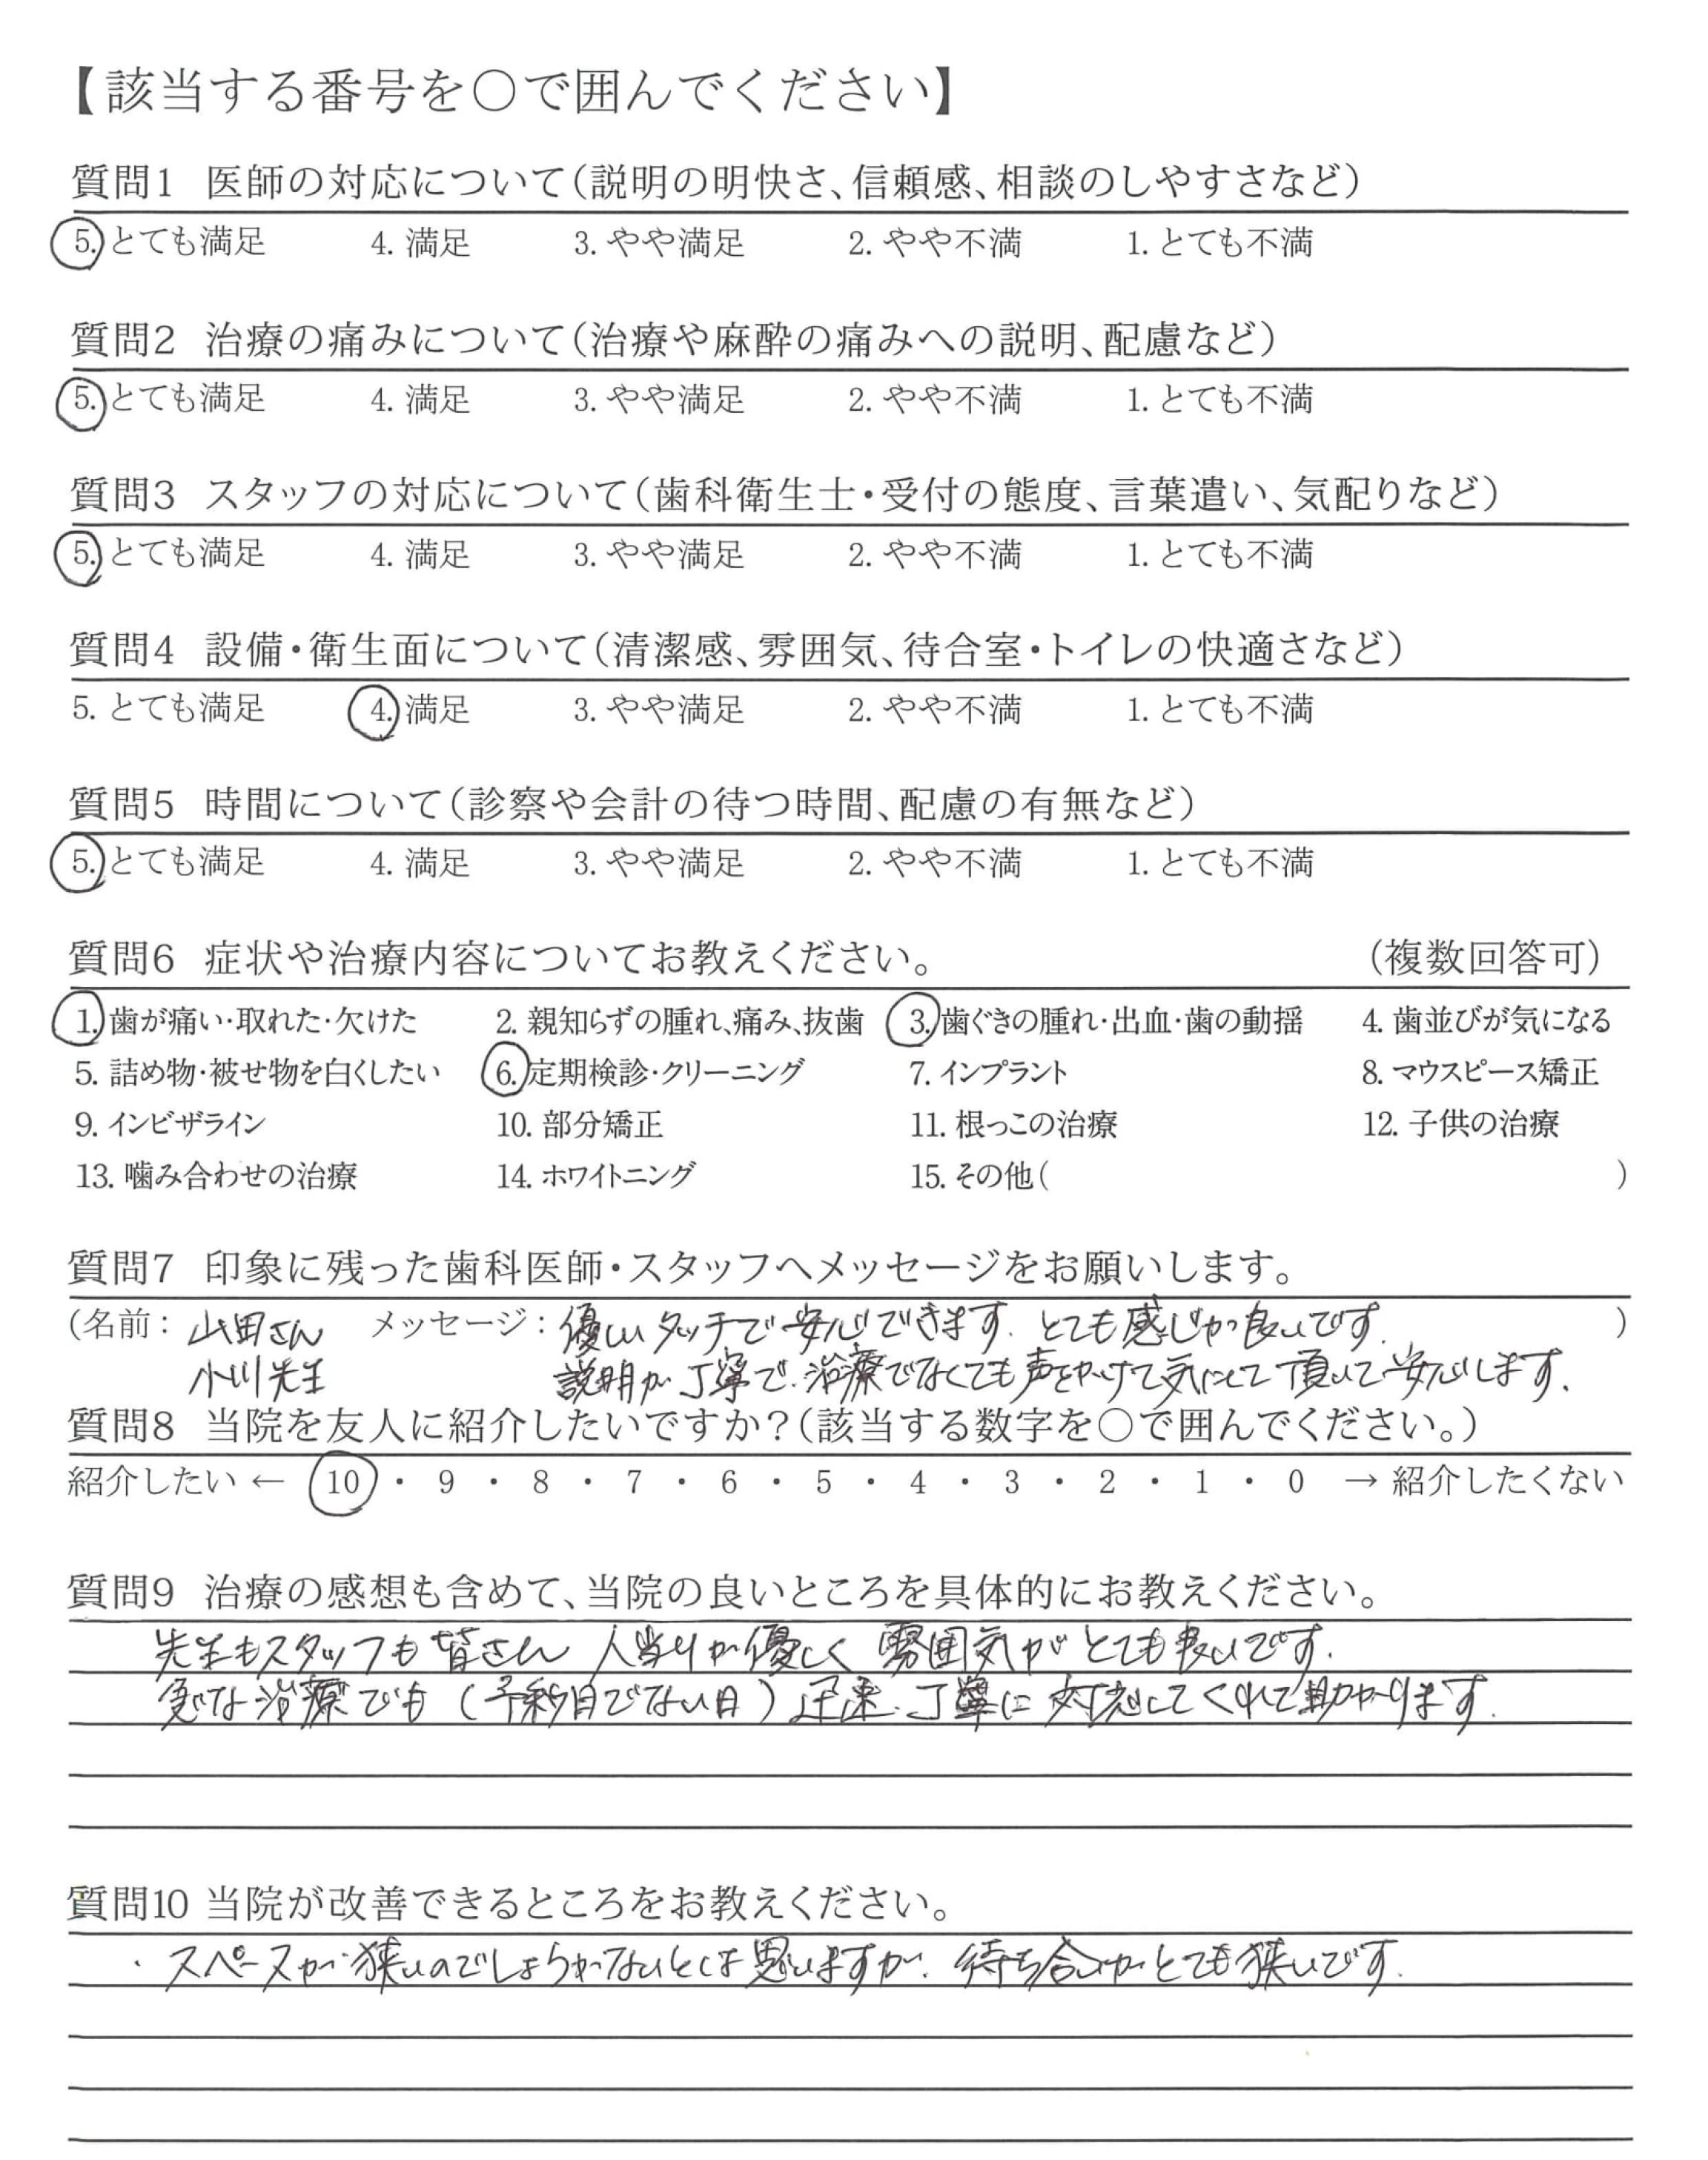 【該当する番号を○で囲んでください】
質問1 医師の対応について(説明の明快さ、信頼感、相談のしやすさなど)
5. とても満足 4. 満足 3. やや満足 2. やや不満 1. とても不満
質問2 治療の痛みについて(治療や麻酔の痛みへの説明、配慮など)
5. とても満足 4. 満足 3. やや満足 2. やや不満 1. とても不満
質問3 スタッフの対応について(歯科衛生士・受付の態度、言葉遣い、気配りなど)
5. とても満足 4. 満足 3. やや満足 2. やや不満 1. とても不満
質問4 設備・衛生面について(清潔感、雰囲気、待合室・トイレの快適さなど)
5. とても満足 4. 満足 3. やや満足 2. やや不満 1. とても不満
質問5 時間について(診察や会計の待つ時間、配慮の有無など)
5. とても満足 4. 満足 3. やや満足 2. やや不満 1. とても不満
質問6 症状や治療内容についてお教えください。 (複数回答可)
1. 歯が痛い・取れた・欠けた 2. 親知らずの腫れ、痛み、抜歯 3. 歯ぐきの腫れ・出血・歯の動揺 4. 歯並びが気になる
5. 詰め物・被せ物を白くしたい 6. 定期検診・クリーニング 7. インプラント 8. マウスピース矯正
9. インビザライン 10. 部分矯正 11. 根っこの治療 12. 子供の治療
13. 噛み合わせの治療 14. ホワイトニング 15. その他( )
質問7 印象に残った歯科医師・スタッフへメッセージをお願いします。
(名前: 山田さん メッセージ: 優しいタッチで安心できます. とても感じが良いです. )
小川先生 説明が丁寧で、治療でなくても声をかけて気にして頂いて安心します.
質問8 当院を友人に紹介したいですか?(該当する数字を○で囲んでください。)
紹介したい ← 10 ・ 9 ・ 8 ・ 7 ・ 6 ・ 5 ・ 4 ・ 3 ・ 2 ・ 1 ・ 0 → 紹介したくない
質問9 治療の感想も含めて、当院の良いところを具体的にお教えください。
先生もスタッフも皆さん 人当りが優しく 雰囲気がとても良いです.
急な治療でも (予約日でない日) 丁寧に対応してくれて助かります.
質問10 当院が改善できるところをお教えください。
・スペースが狭いのでしょうがないとは思いますが、待ち合いがとても狭いです.